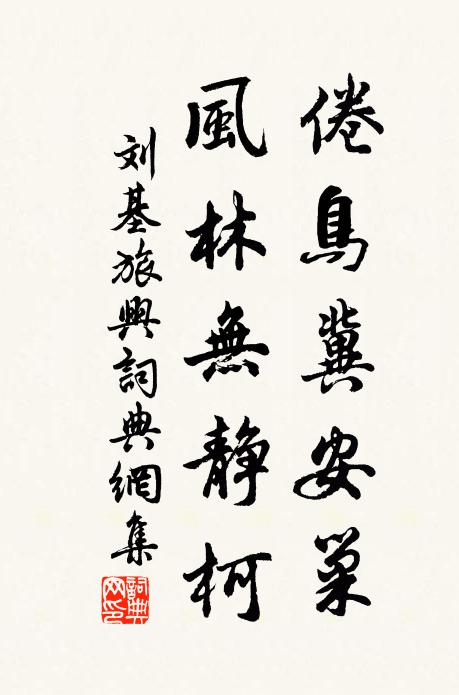 倦鳥冀安巢
風林無静柯
刘基旅興詞典網集
詞典网印